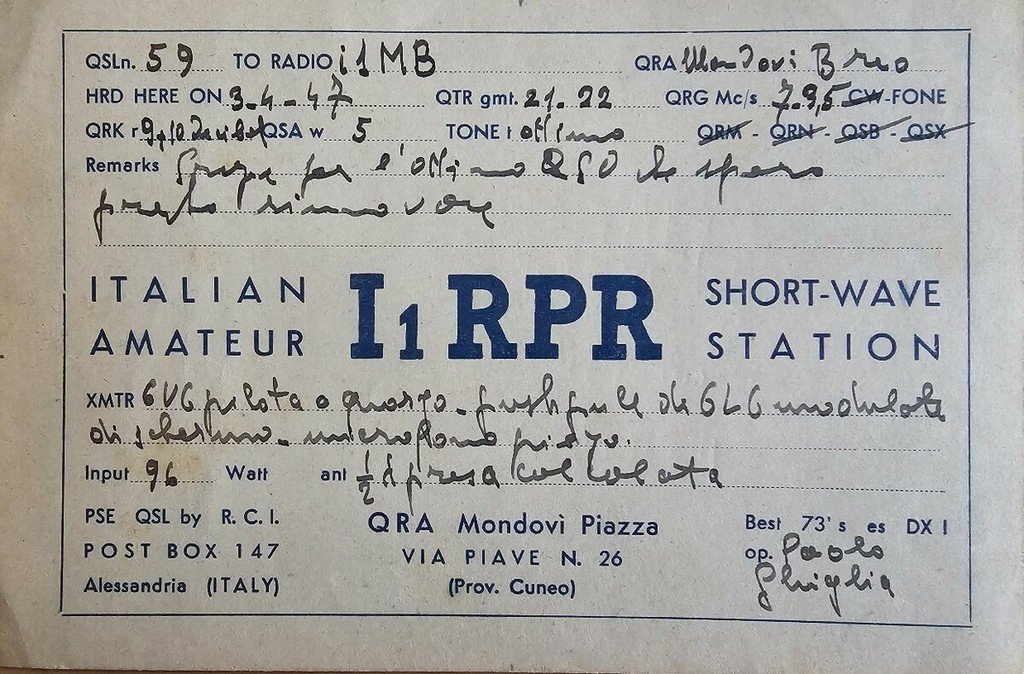 QSLn. 59 TO RADIO i1MB QRA Mondovi Breo
HRD HERE ON 3-4-47 QTR gmt. 21.22 QRG Mc/s 7.35 CW-FONE
QRK r 9+10 Decibel QSA w 5 TONE t ottimo QRM - QRN - QSB - QSX
Remarks Grazie per l'ottimo QSO che spero
presto rinnovare
ITALIAN AMATEUR I1RPR SHORT-WAVE STATION
XMTR 6V6 pilota a quarzo - push pull di 6L6 modulate
di schermo - microfono piezo.
Input 96 Watt ant ½ λ presa calcolata
PSE QSL by R. C. I. QRA Mondovì Piazza Best 73's es DX !
POST BOX 147 VIA PIAVE N. 26 op. Paolo
Alessandria (ITALY) (Prov. Cuneo) Ghiglia